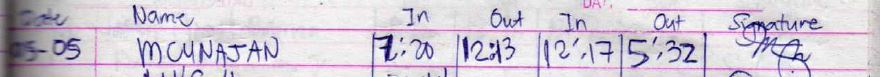 Date Name In Out In Out Signature
05-05 MCUNAJAN 7:20 12:13 12:17 5:32